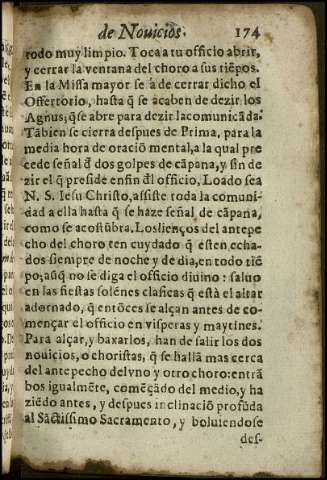 de Nouicios. 174
todo muy limpio. Toca a tu officio abrir,
y cerrar la ventana del choro a sus tiẽpos.
En la Missa mayor se à de cerrar dicho el
Offertorio, hasta q̃ se acaben de dezir los
Agnus; q̃ se abre para dezir la comunicãda:
Tãbien se cierra despues de Prima, para la
media hora de oraciõ mental, a la qual pre
cede señal d̃ dos golpes de cãpana, y sin de
zir el q̃ preside en fin d̃l officio, Loado sea
N. S. Iesu Christo, assiste toda la comuni-
dad a ella hasta q̃ se haze señal de cãpana,
como se acostũbra. Los lienços del antepe
cho del choro ten cuydado q̃ esten echa-
dos siempre de noche y de dia, en todo tiẽ
po; aũq̃ no se diga el officio diuino: saluo
en las fiestas solénes clasicas q̃ està el altar
adornado, q̃ entõces se alçan antes de co-
mençar el officio en visperas y maytines.
Para alçar, y baxarlos, han de salir los dos
nouicios, o choristas, q̃ se hallã mas cerca
del antepecho del vno y otro choro: entrã
bos igualmẽte, comẽçãdo del medio, y ha
ziẽdo antes, y despues inclinaciõ profũda
al Sãctissimo Sacramento, y boluiendose
des-